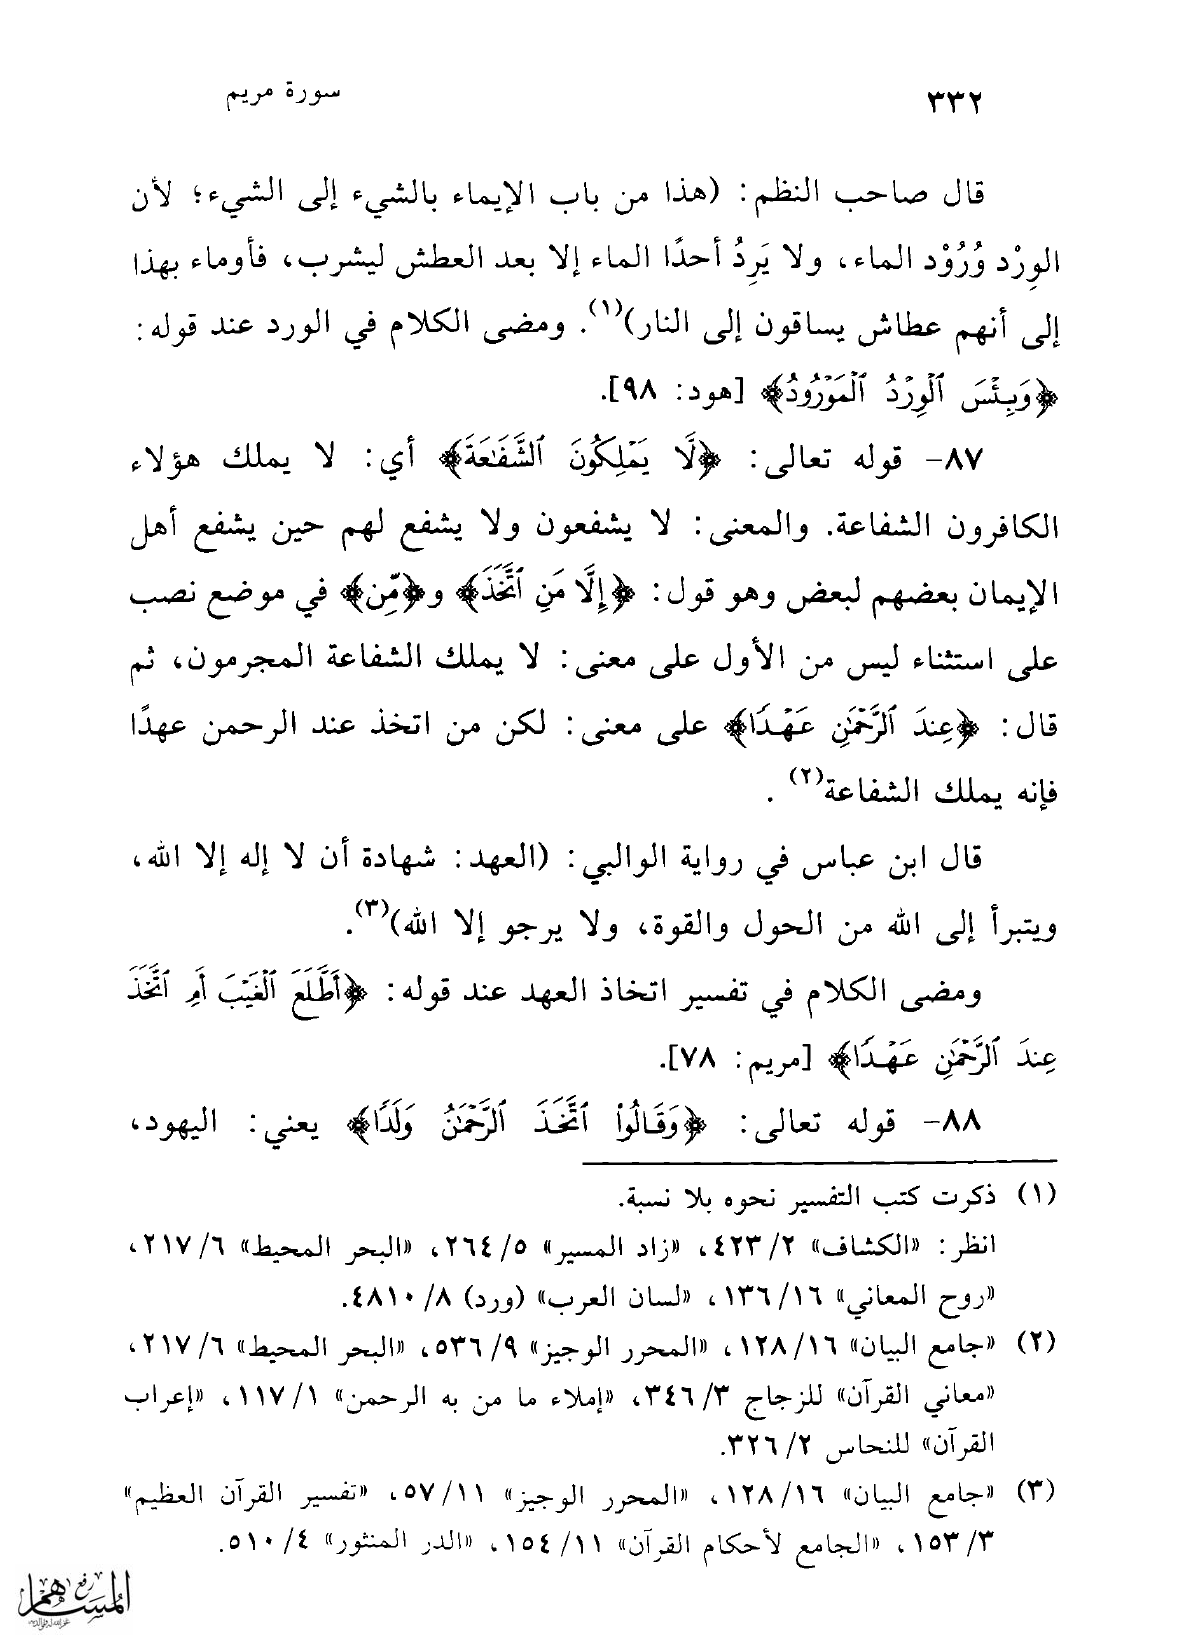 ٣٣٢ سورة مريم
قال صاحب النظم: (هذا من باب الإيماء بالشيء إلى الشيء؛ لأن
الوِرْد وُرُوْد الماء، ولا يَرِدُ أحدًا الماء إلا بعد العطش ليشرب، فأوماء بهذا
إلى أنهم عطاش يساقون إلى النار)(١). ومضى الكلام في الورد عند قوله:
﴿وَبِئْسَ ٱلْوِرْدُ ٱلْمَوْرُودُ﴾ [هود: ٩٨].
٨٧- قوله تعالى: ﴿لَّا يَمْلِكُونَ ٱلشَّفَٰعَةَ﴾ أي: لا يملك هؤلاء
الكافرون الشفاعة. والمعنى: لا يشفعون ولا يشفع لهم حين يشفع أهل
الإيمان بعضهم لبعض وهو قول: ﴿إِلَّا مَنِ ٱتَّخَذَ﴾ و﴿مِّن﴾ في موضع نصب
على استثناء ليس من الأول على معنى: لا يملك الشفاعة المجرمون، ثم
قال: ﴿عِندَ ٱلرَّحْمَٰنِ عَهْدًا﴾ على معنى: لكن من اتخذ عند الرحمن عهدًا
فإنه يملك الشفاعة(٢) .
قال ابن عباس في رواية الوالبي: (العهد: شهادة أن لا إله إلا الله،
ويتبرأ إلى الله من الحول والقوة، ولا يرجو إلا الله)(٣).
ومضى الكلام في تفسير اتخاذ العهد عند قوله: ﴿أَطَّلَعَ ٱلْغَيْبَ أَمِ ٱتَّخَذَ
عِندَ ٱلرَّحْمَٰنِ عَهْدًا﴾ [مريم: ٧٨].
٨٨- قوله تعالى: ﴿وَقَالُوا۟ ٱتَّخَذَ ٱلرَّحْمَٰنُ وَلَدًا﴾ يعني: اليهود،
(١) ذكرت كتب التفسير نحوه بلا نسبة.
انظر: «الكشاف» ٢/ ٤٢٣، «زاد المسير» ٥/ ٢٦٤، «البحر المحيط» ٦/ ٢١٧،
«روح المعاني» ١٦/ ١٣٦، «لسان العرب» (ورد) ٨/ ٤٨١٠.
(٢) «جامع البيان» ١٦/ ١٢٨، «المحرر الوجيز» ٩/ ٥٣٦، «البحر المحيط» ٦/ ٢١٧،
«معاني القرآن» للزجاج ٣/ ٣٤٦، «إملاء ما من به الرحمن» ١/ ١١٧، «إعراب
القرآن» للنحاس ٢/ ٣٢٦.
(٣) «جامع البيان» ١٦/ ١٢٨، «المحرر الوجيز» ١١/ ٥٧، «تفسير القرآن العظيم»
٣/ ١٥٣، «الجامع لأحكام القرآن» ١١/ ١٥٤، «الدر المنثور» ٤/ ٥١٠.